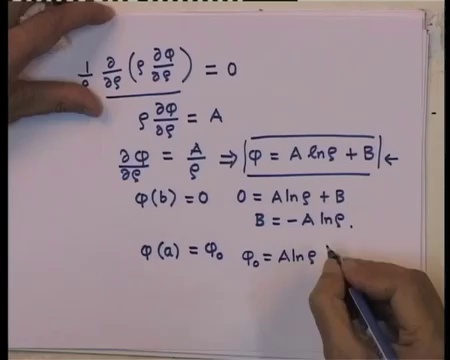 1/ρ ∂/∂ρ (ρ ∂φ/∂ρ) = 0
ρ ∂φ/∂ρ = A
∂φ/∂ρ = A/ρ ⇒ φ = A lnρ + B ←
φ(b) = 0 0 = A lnρ + B
B = -A lnρ.
φ(a) = φ₀ φ₀ = A lnρ